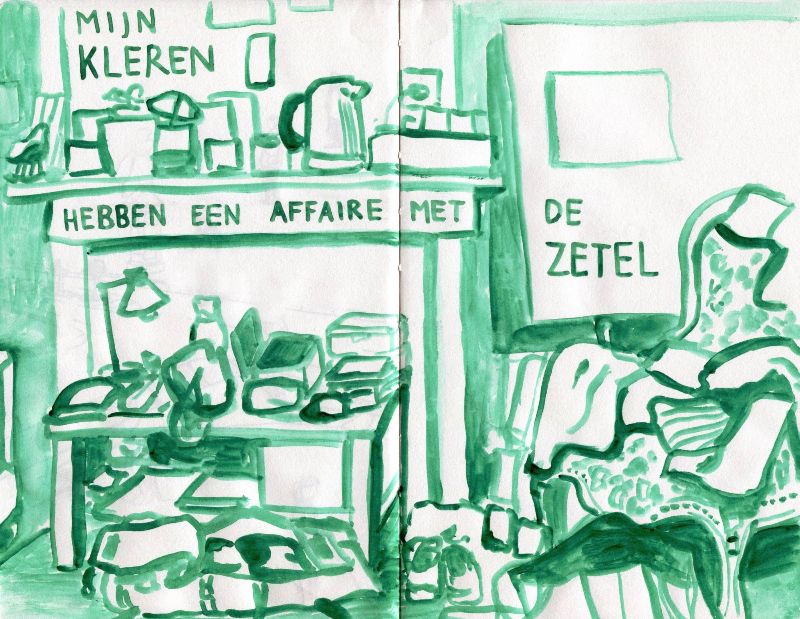 MIJN
KLEREN
HEBBEN EEN AFFAIRE MET
DE
ZETEL